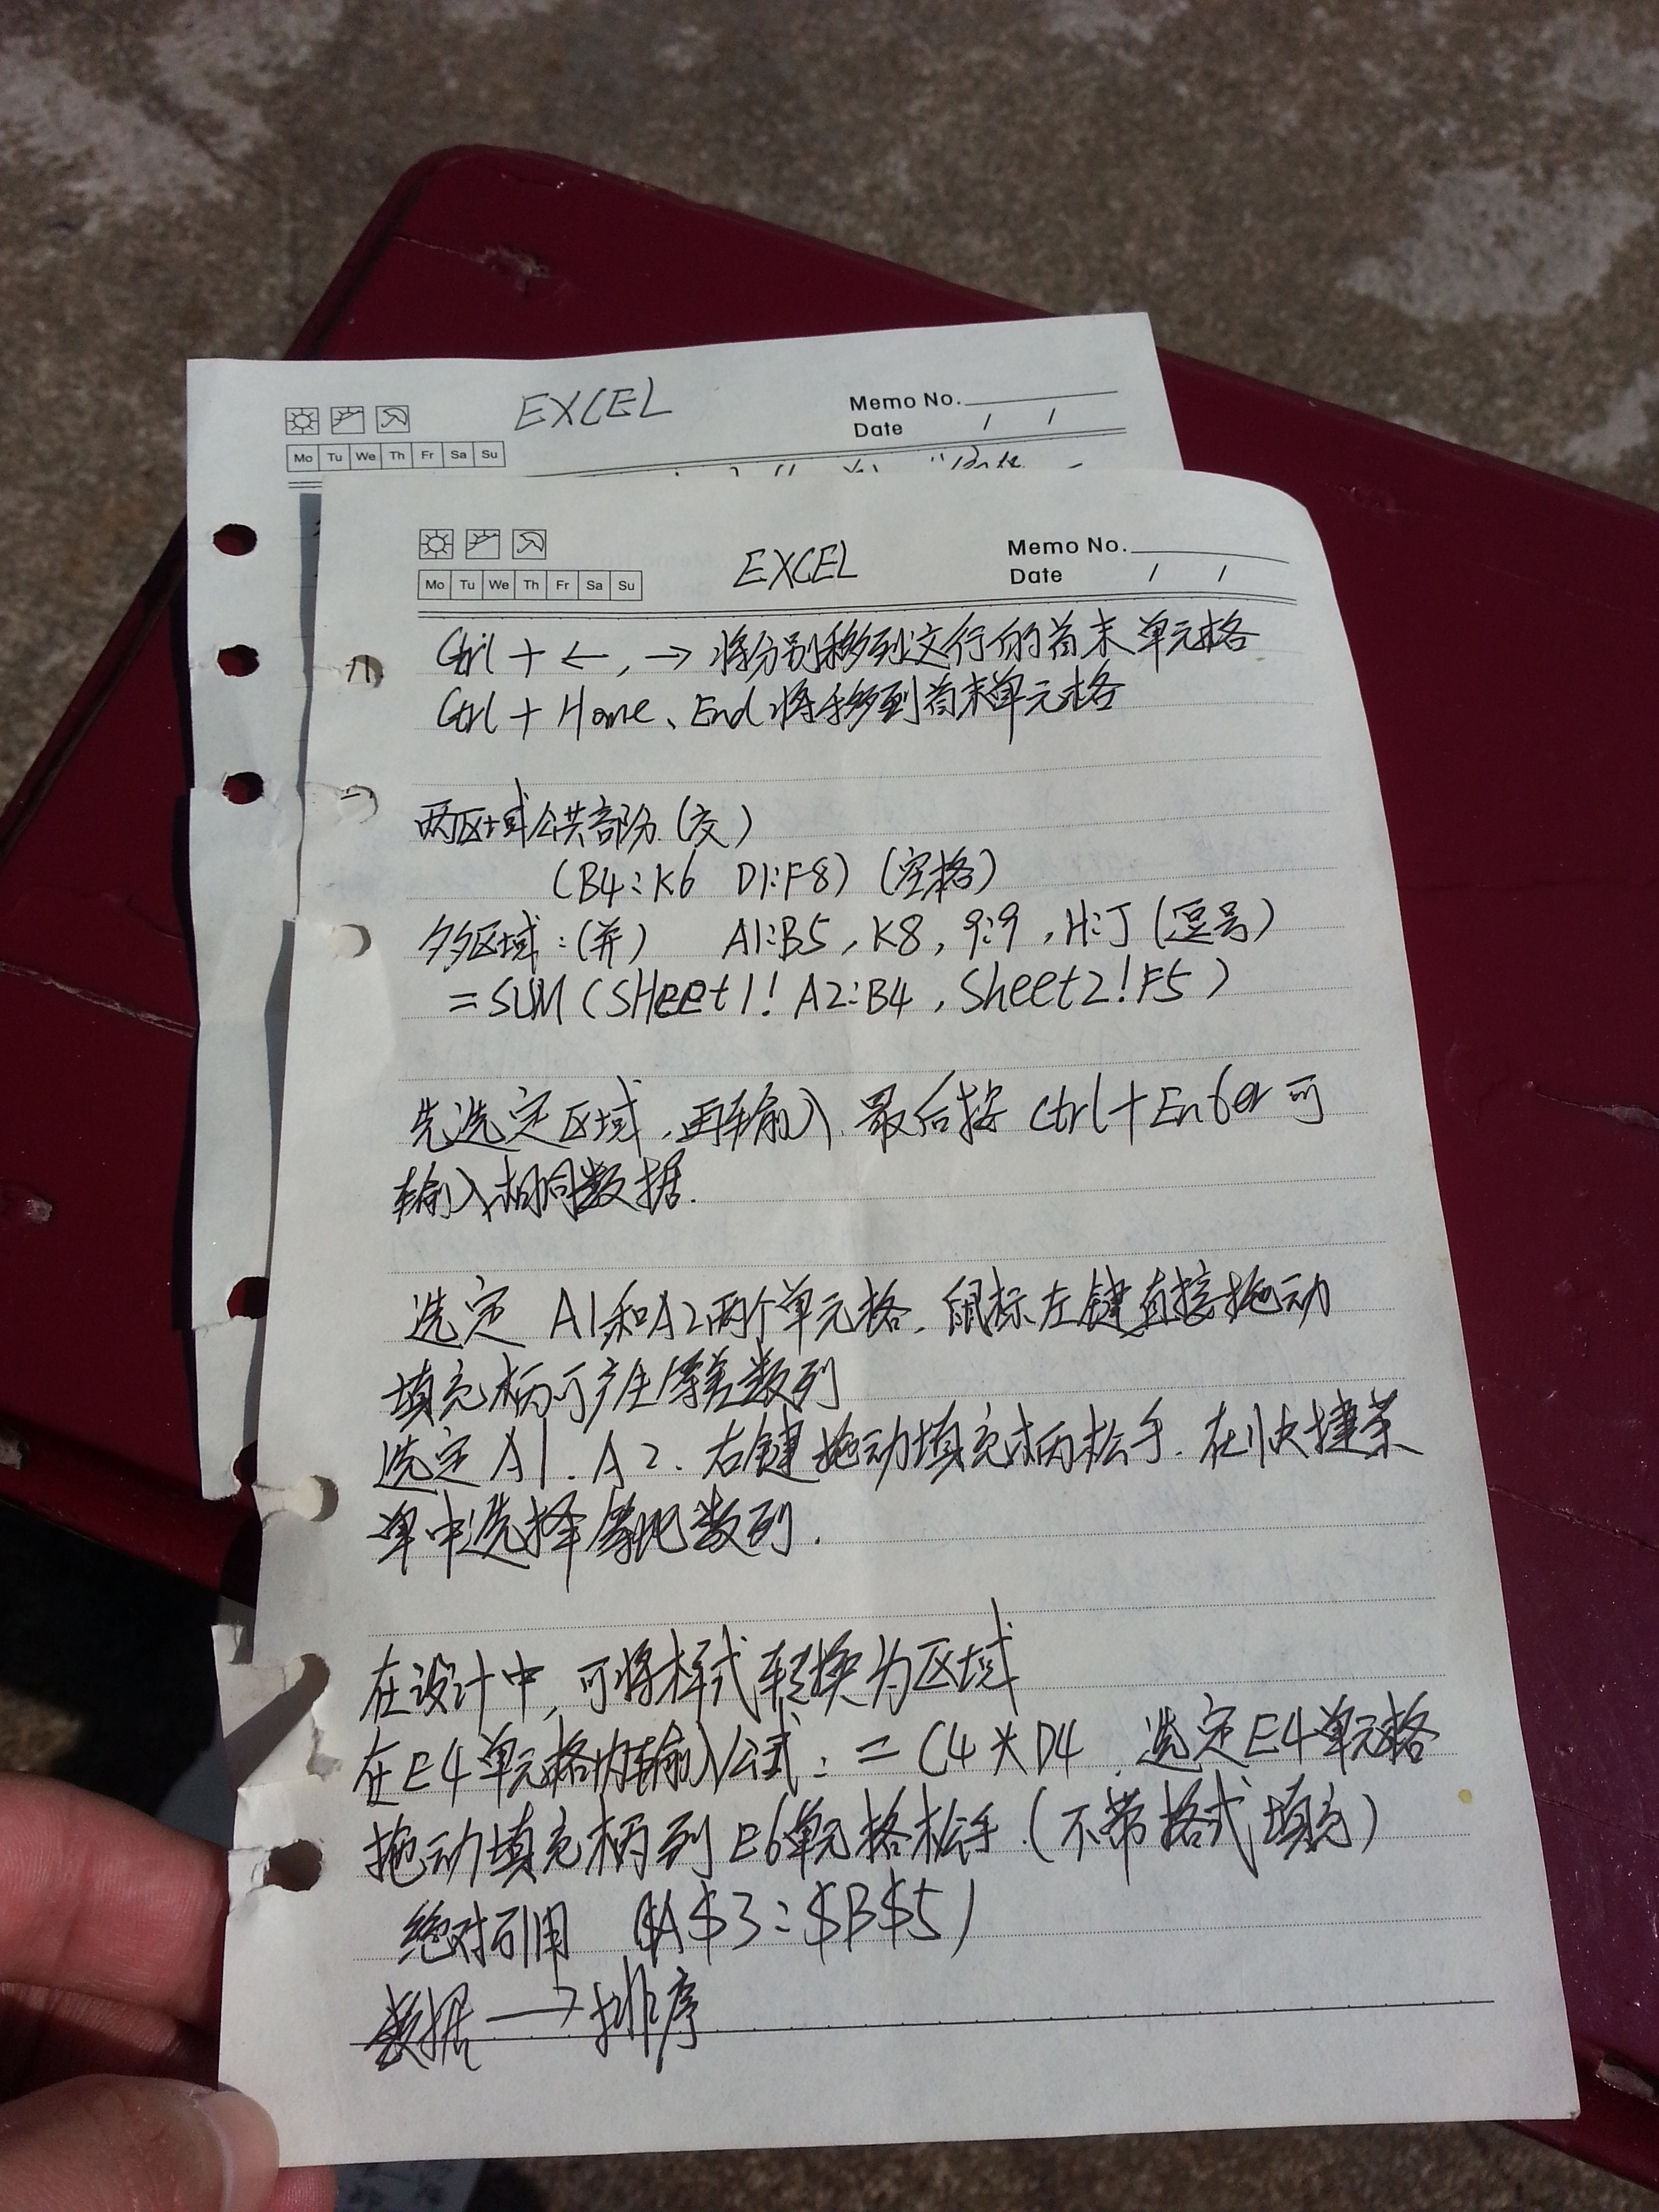 EXCEL
Memo No.
Date / /
Mo Tu We Th Fr Sa Su
EXCEL
Memo No.
Date / /
Mo Tu We Th Fr Sa Su
Ctrl + ←, → 将分别移到文行的首末单元格
Ctrl + Home、End 将移到首末单元格
两区域公共部分(交)
(B4:K6 D1:F8) (空格)
多区域:(并) A1:B5, K8, 9:9, H:J (逗号)
=SUM(SHeet1! A2:B4, Sheet2!F5)
先选定区域,再输入,最后按 Ctrl+Enter 可
输入相同数据.
选定 A1和A2两个单元格,鼠标左键直接拖动
填充柄可产生等差数列
选定 A1、A2、右键拖动填充柄松手.在快捷菜
单中选择等比数列.
在设计中,可将样式转换为区域
在E4单元格内输入公式:=C4*D4,选定E4单元格
拖动填充柄到E6单元格松手.(不带格式填充)
绝对引用 ($A$3:$B$5)
数据→排序